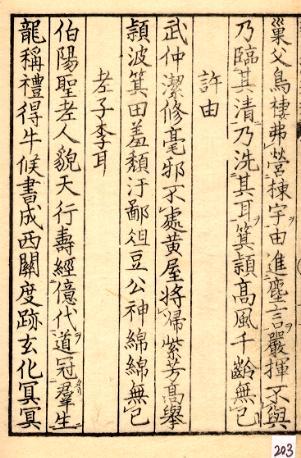 巢父鳥棲弗營棟宇由進塵言嚴揮不與
乃臨其清乃洗其耳箕潁高風千齡無已
許由
武仲潔修毫邪不處黃屋將歸紫芳高擧
潁波箕田羞頮汙鄙俎豆公神綿綿無已
老子李耳
伯陽聖老人貌天行壽經億代道冠羣生
龍稱禮得牛候書成西關度跡玄化冥冥
203